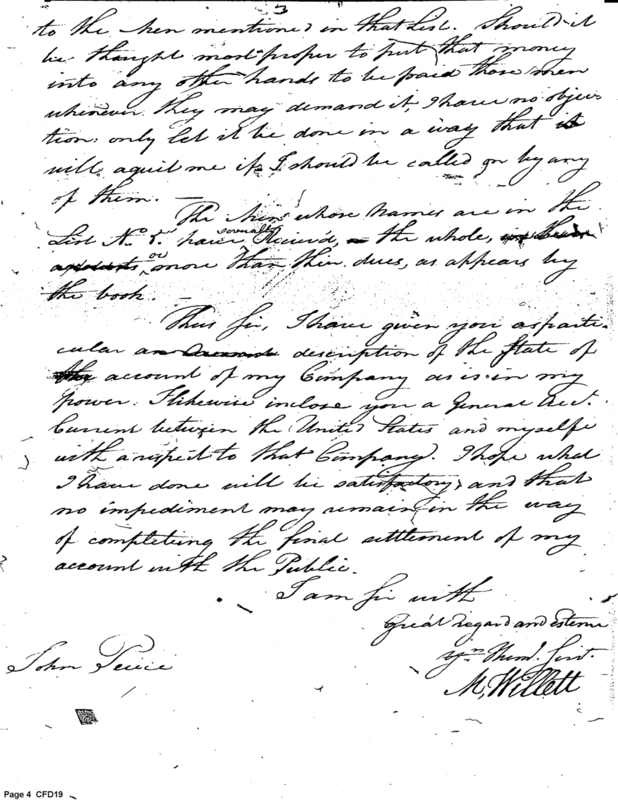 3
to the Men mentioned in that List. Should it
be thought most proper to put that money
into any other hands to be paid those men
whenever they may demand it, I have no objec-
tion, only let it be done in a way that is
will aquit me if I should be called on by any
of them. —
The Mens whose Names are in the
List No. 5. have severally Reciev'd, the whole,
or more than their dues, as appears by
the book. —
Thus Sir, I have given you as parti-
cular an description of the State of
the account of my Company as is in my
power. I likewise inclose you a General Acct.
Current between the United States and myselfe
with a respect to that Company. I hope what
I have done will be satisfactory, and that
no impediment may remain in the way
of completing the final settlement of my
account with the Public.
I am Sir with
Great regard and esteme
Huml. Servt.
M, Willett
John Peirce
Page 4 CFD19